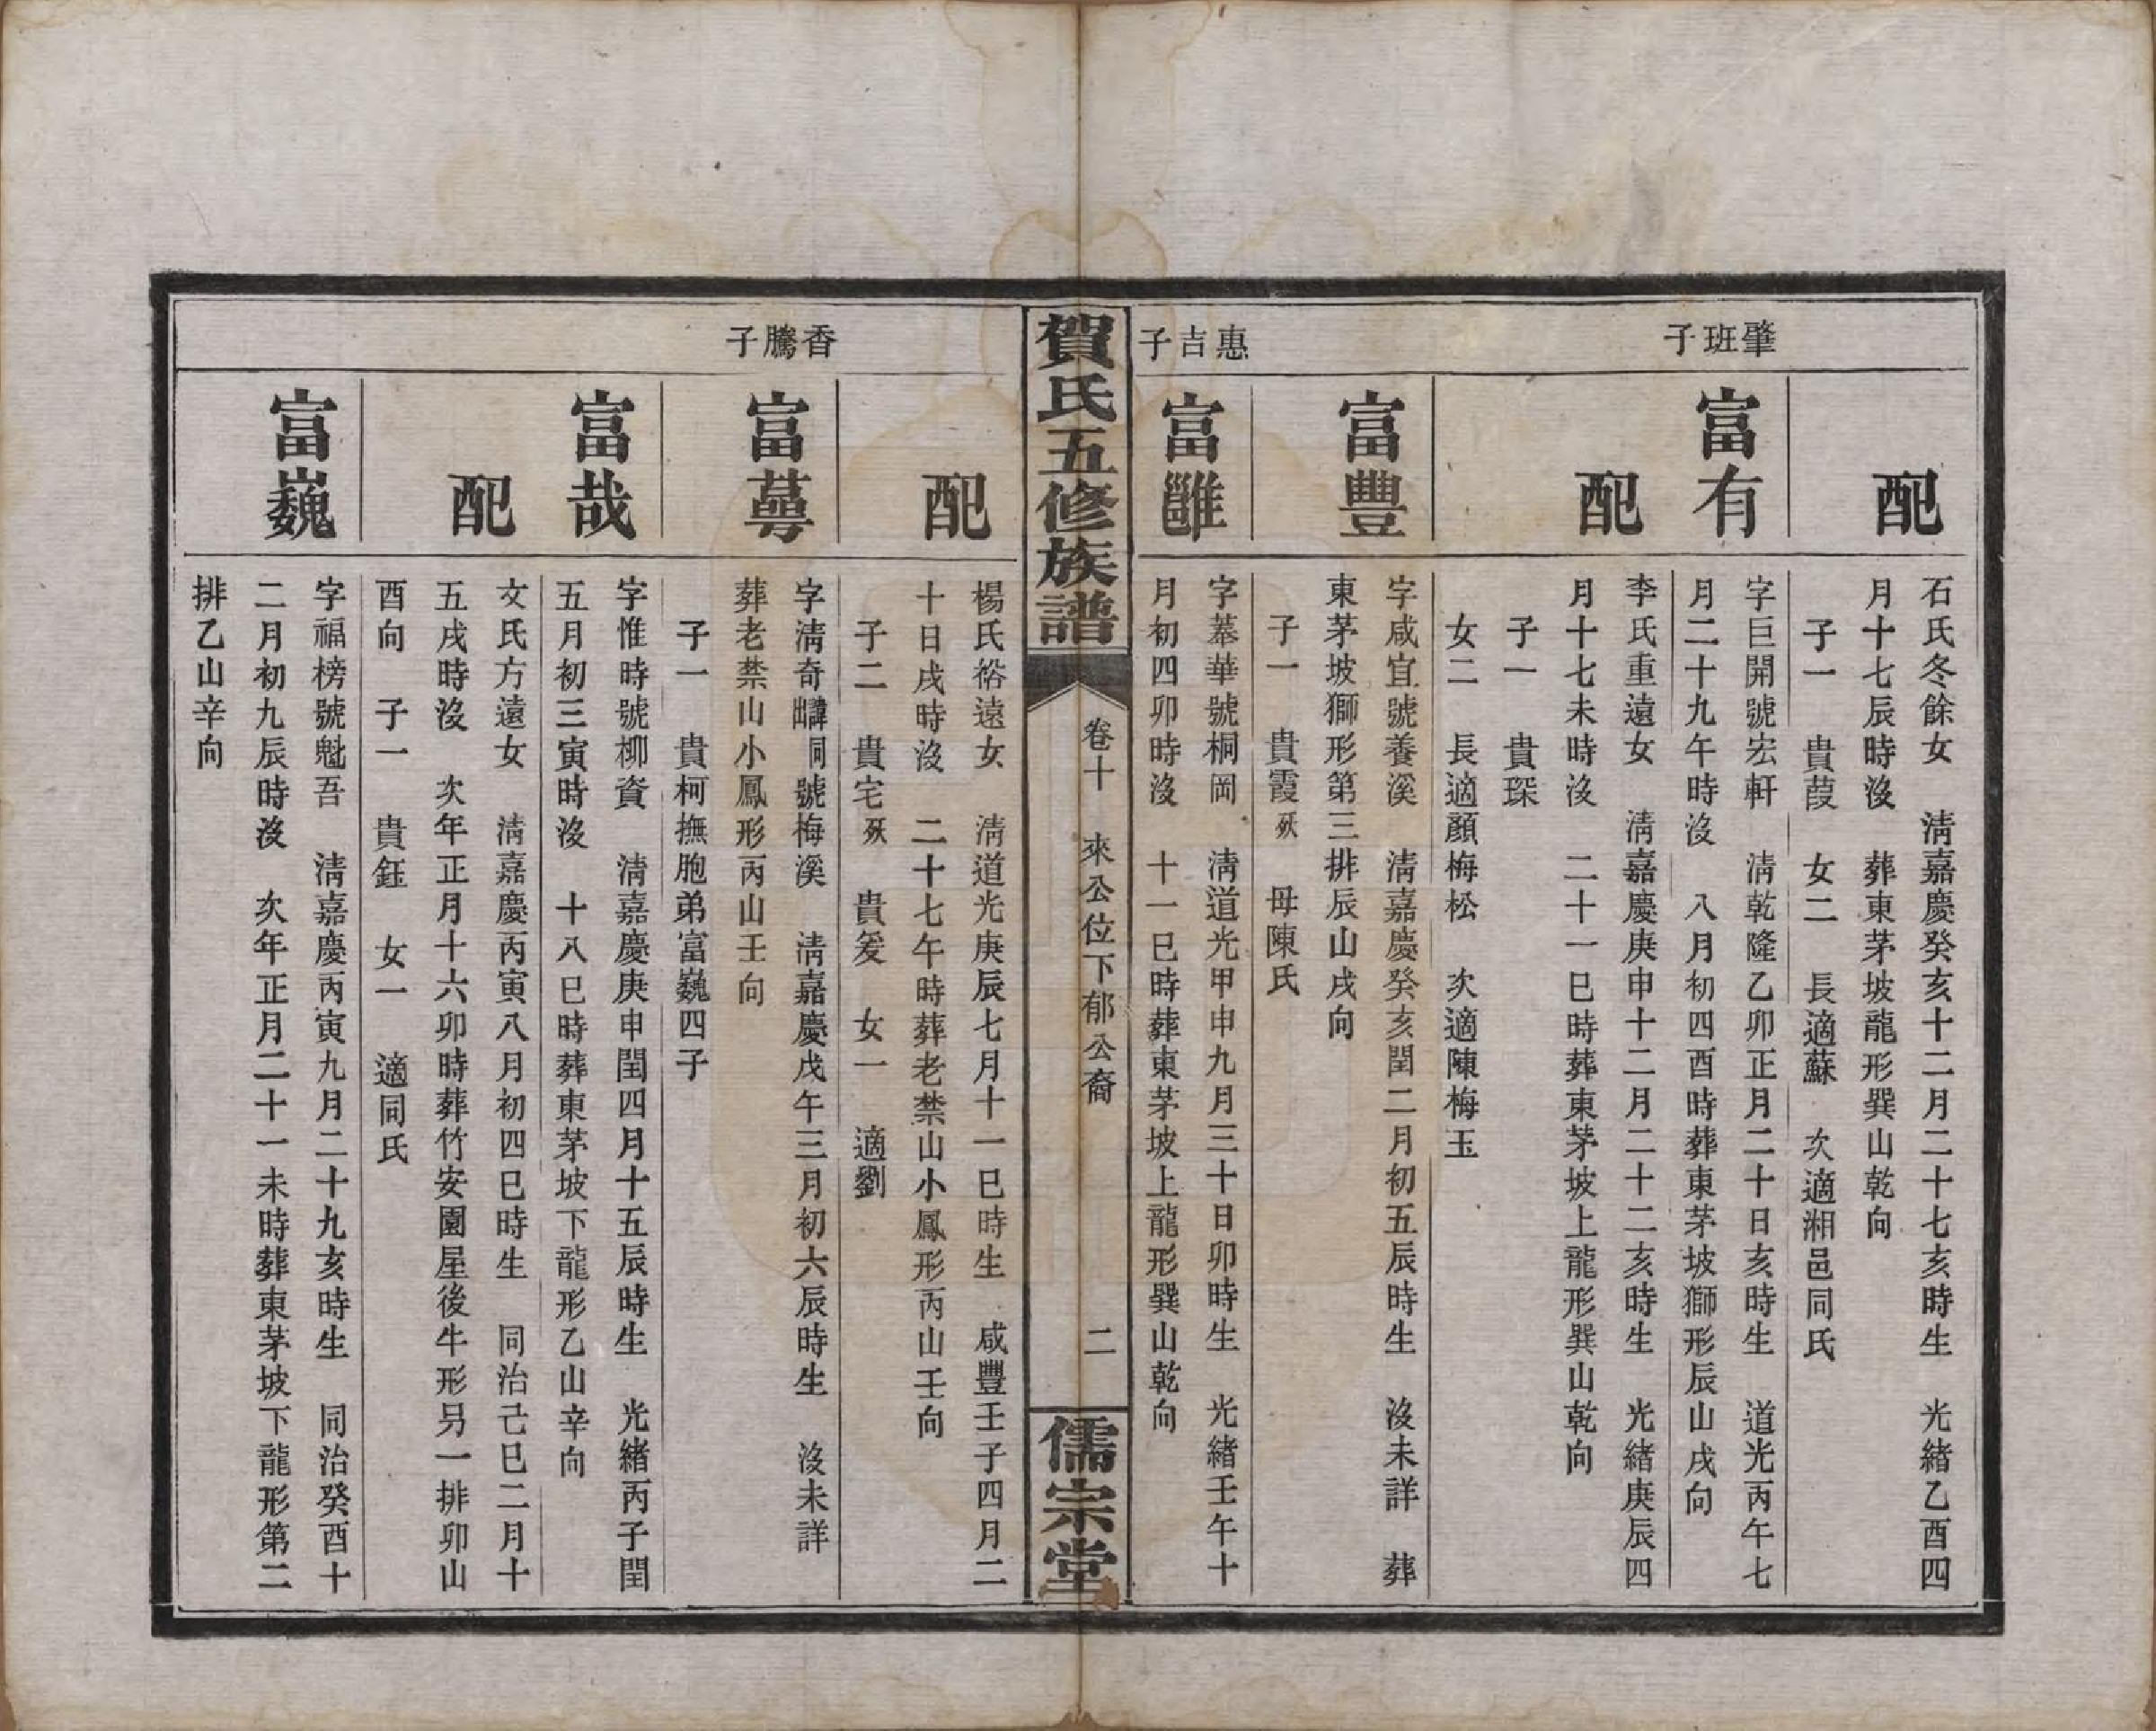 配
石氏冬餘女　淸嘉慶癸亥十二月二十七亥時生　光緒乙酉四
月十七辰時沒　葬東茅坡龍形巽山乾向
子一　貴葭　女二　長適蘇　次適湘邑同氏
肇班子
富有
字巨開號宏軒　淸乾隆乙卯正月二十日亥時生　道光丙午七
月二十九午時沒　八月初四酉時葬東茅坡獅形辰山戌向
配
李氏重遠女　淸嘉慶庚申十二月二十二亥時生　光緒庚辰四
月十七未時沒　二十一巳時葬東茅坡上龍形巽山乾向
子一　貴琛
女二　長適顏梅松　次適陳梅玉
富豐
字咸宜號養溪　淸嘉慶癸亥閏二月初五辰時生　沒未詳　葬
東茅坡獅形第三排辰山戌向
子一　貴霞殀　母陳氏
惠吉子
富雝
字蓁華號桐岡　淸道光甲申九月三十日卯時生　光緒壬午十
月初四卯時沒　十一巳時葬東茅坡上龍形巽山乾向
賀氏五修族譜
卷十　來公位下郁公裔
二
儒宗堂
配
楊氏裕遠女　淸道光庚辰七月十一巳時生　咸豐壬子四月二
十日戌時沒　二十七午時葬老禁山小鳳形丙山壬向
子二　貴宅殀　貴爰　女一　適劉
香騰子
富蕚
字淸奇譜諱峝號梅溪　淸嘉慶戊午三月初六辰時生　沒未詳
葬老禁山小鳳形丙山壬向
子一　貴柯撫胞弟富巍四子
富哉
字惟時號柳資　淸嘉慶庚申閏四月十五辰時生　光緒丙子閏
五月初三寅時沒　十八巳時葬東茅坡下龍形乙山辛向
配
文氏方遠女　淸嘉慶丙寅八月初四巳時生　同治己巳二月十
五戌時沒　次年正月十六卯時葬竹安園屋後牛形另一排卯山
酉向　子一　貴鈺　女一　適同氏
富巍
字福榜號魁吾　淸嘉慶丙寅九月二十九亥時生　同治癸酉十
二月初九辰時沒　次年正月二十一未時葬東茅坡下龍形第二
排乙山辛向